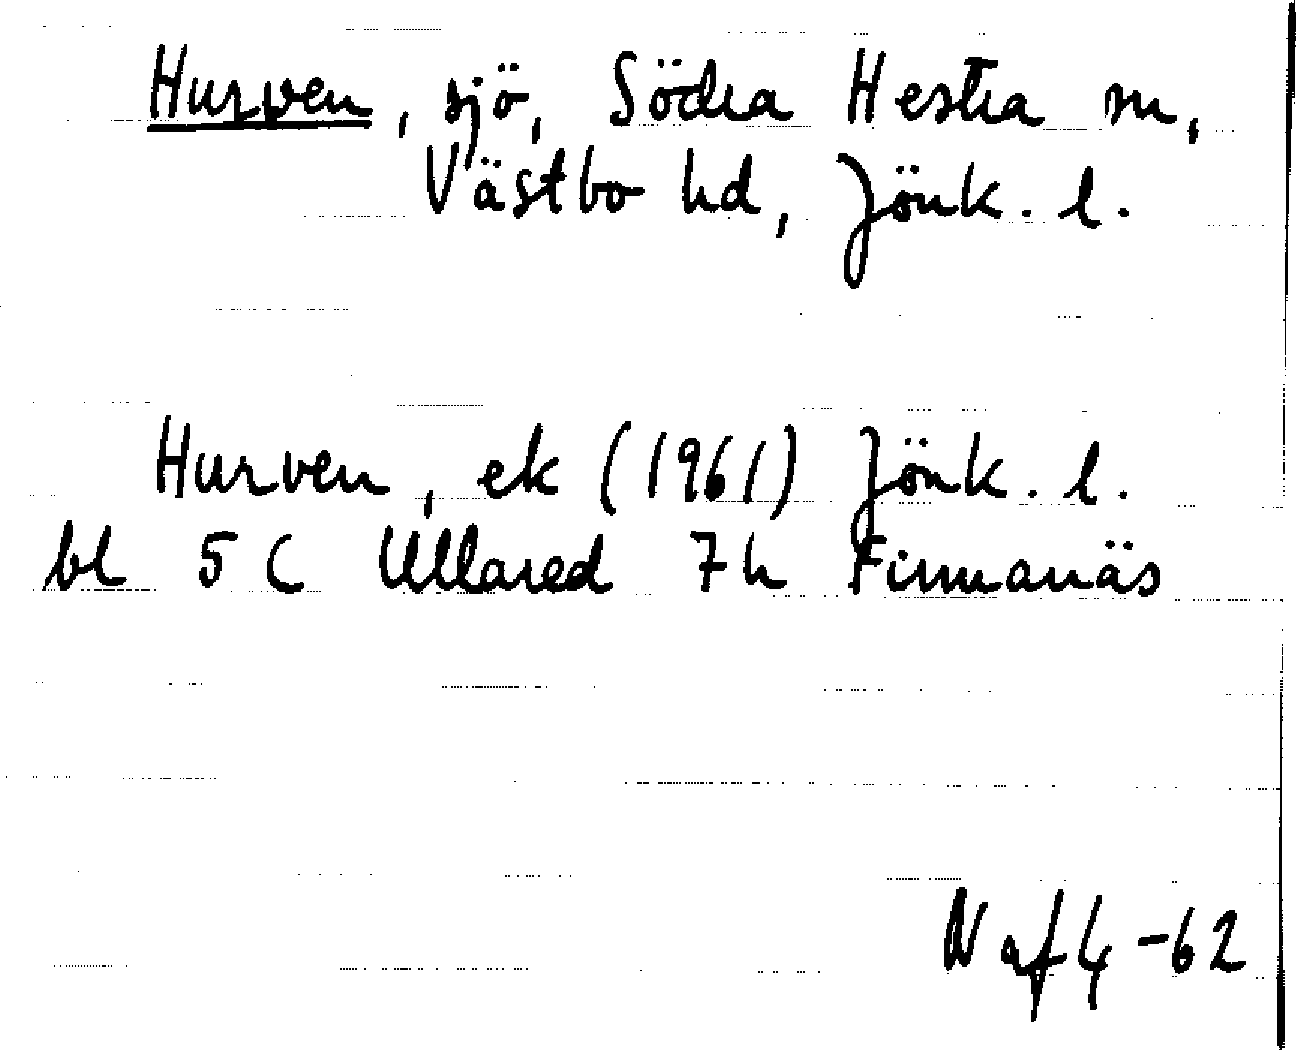 Hurven, sjö, Södra Hestra sn,
Västbo hd, Jönk. l.
Hurven, ek (1961) Jönk. l.
bl 5 C Ullared 7h Finnanäs
N af 4 -62